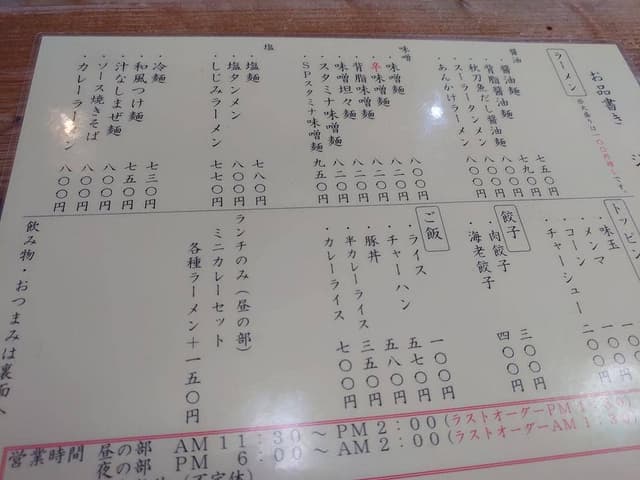 お品書き
ラーメン
醤油
・醤油麺 七五〇円
・背脂醤油麺 七九〇円
・秋刀魚だし醤油麺
・スーラータンメン
・あんかけラーメン 八〇〇円
味噌
・味噌麺 八〇〇円
・辛味噌麺 八二〇円
・背脂味噌麺 八二〇円
・味噌坦々麺 八二〇円
・スタミナ味噌麺
・SPスタミナ味噌麺 九五〇円
塩
・塩麺 七八〇円
・塩タンメン 八〇〇円
・しじみラーメン 七七〇円
・冷麺 七三〇円
・和風つけ麺 八〇〇円
・汁なしまぜ麺 七五〇円
・ソース焼きそば 八〇〇円
・カレーラーメン 八〇〇円
トッピン
・味玉 一〇〇円
・メンマ 一〇〇円
・コーン
・チャーシュー 二〇〇円
餃子
・肉餃子 三〇〇円
・海老餃子 四〇〇円
ご飯
・ライス 一〇〇円
・チャーハン 五七〇円
・豚丼 五八〇円
・半カレーライス 三五〇円
・カレーライス 七〇〇円
ランチのみ(昼の部)
ミニカレーセット
各種ラーメン+一五〇円
飲み物・おつまみは裏面へ
営業時間 昼の部 AM11:30～PM2:00(ラストオーダーPM1:30)
夜の部 PM 6:00～AM2:00(ラストオーダーAM1:30)
(不定休)